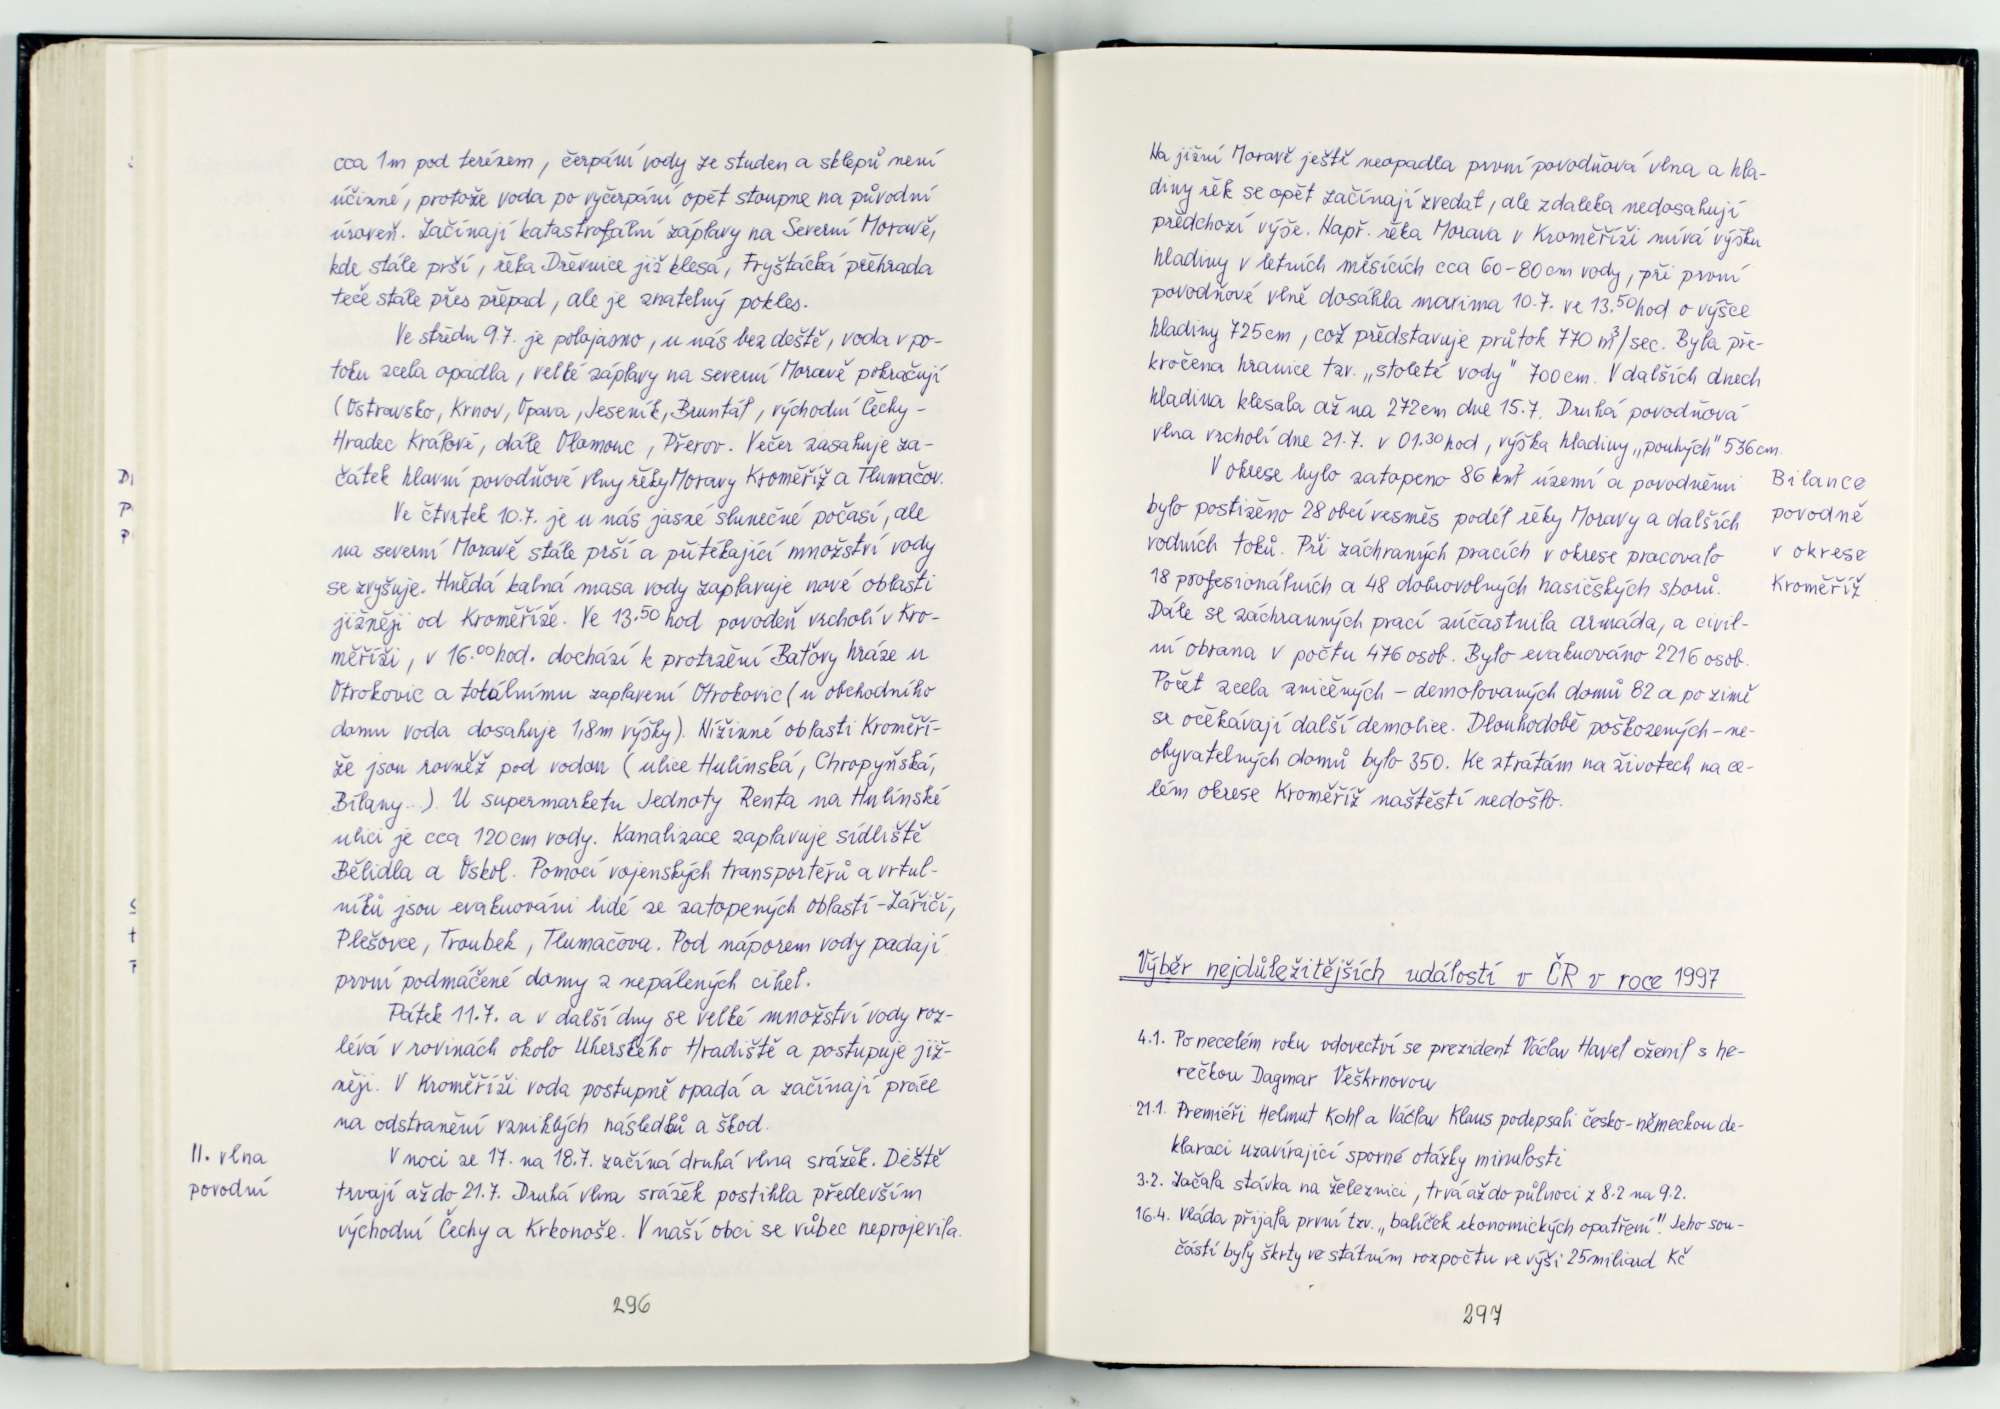 cca 1m pod terénem, čerpání vody ze studen a sklepů není
účinné, protože voda po vyčerpání opět stoupne na původní
úroveň. Začínají katastrofální záplavy na Severní Moravě,
kde stále prší, řeka Dřevnice již klesá, Fryštácká přehrada
teče stále přes přepad, ale je znatelný pokles.
Ve středu 9.7. je polojasno, u nás bez deště, voda v po-
toku zcela opadla, velké záplavy na severní Moravě pokračují
(Ostravsko, Krnov, Opava, Jeseník, Bruntál, východní Čechy -
Hradec Králové, dále Olomouc, Přerov. Večer zasahuje za-
čátek hlavní povodňové vlny řeky Moravy Kroměříž a Tlumačov.
Ve čtvrtek 10.7. je u nás jasné slunečné počasí, ale
na severní Moravě stále prší a přitékající množství vody
se zvyšuje. Hnědá kalná masa vody zaplavuje nové oblasti
jižněji od Kroměříže. Ve 13.50 hod povodeň vrcholí v Kro-
měříži, v 16.00 hod. dochází k protržení Baťovy hráze u
Otrokovic a totálnímu zaplavení Otrokovic (u obchodního
domu voda dosahuje 1,8m výšky). Nížinné oblasti Kroměří-
že jsou rovněž pod vodou (ulice Hulínská, Chropyňská,
Bílany...). U supermarketu Jednoty Renta na Hulínské
ulici je cca 120cm vody. Kanalizace zaplavuje sídliště
Bělidla a Oskol. Pomocí vojenských transportérů a vrtul-
níků jsou evakuováni lidé ze zatopených oblastí - Záříčí,
Plešovce, Troubek, Tlumačova. Pod náporem vody padají
první podmáčené domy z nepálených cihel.
Pátek 11.7. a v další dny se velké množství vody roz-
lévá v rovinách okolo Uherského Hradiště a postupuje již-
něji. V Kroměříži voda postupně opadá a začínají práce
na odstranění vzniklých následků a škod.
II. vlna
povodní
V noci ze 17. na 18.7. začíná druhá vlna srážek. Deště
trvají až do 21.7. Druhá vlna srážek postihla především
východní Čechy a Krkonoše. V naší obci se vůbec neprojevila.
296
Na jižní Moravě ještě neopadla první povodňová vlna a hla-
diny řek se opět začínají zvedat, ale zdaleka nedosahují
předchozí výše. Např. řeka Morava v Kroměříži mívá výšku
hladiny v letních měsících cca 60-80cm vody, při první
povodňové vlně dosáhla maxima 10.7. ve 13.50 hod o výšce
hladiny 725cm, což představuje průtok 770 m³/sec. Byla pře-
kročena hranice tzv. „stoleté vody" 700cm. V dalších dnech
hladina klesala až na 272cm dne 15.7. Druhá povodňová
vlna vrcholí dne 21.7. v 01.30 hod, výška hladiny „pouhých" 536cm.
V okrese bylo zatopeno 86 km² území a povodněmi
bylo postiženo 28 obcí vesměs podél řeky Moravy a dalších
vodních toků. Při záchraných pracích v okrese pracovalo
18 profesionálních a 48 dobrovolných hasičských sborů.
Dále se záchranných prací zúčastnila armáda, a civil-
ní obrana v počtu 476 osob. Bylo evakuováno 2216 osob.
Počet zcela zničených - demolovaných domů 82 a po zimě
se očekávají další demolice. Dlouhodobě poškozených - ne-
obyvatelných domů bylo 350. Ke ztrátám na životech na ce-
lém okrese Kroměříž naštěstí nedošlo.
Bilance
povodně
v okrese
Kroměříž
Výběr nejdůležitějších událostí v ČR v roce 1997
4.1. Po necelém roku vdovectví se prezident Václav Havel oženil s he-
rečkou Dagmar Veškrnovou
21.1. Premiéři Helmut Kohl a Václav Klaus podepsali česko-německou de-
klaraci uzavírající sporné otázky minulosti
3.2. Začala stávka na železnici, trvá až do půlnoci z 8.2 na 9.2.
16.4. Vláda přijala první tzv. „balíček ekonomických opatření". Jeho sou-
částí byly škrty ve státním rozpočtu ve výši 25 miliard Kč
297